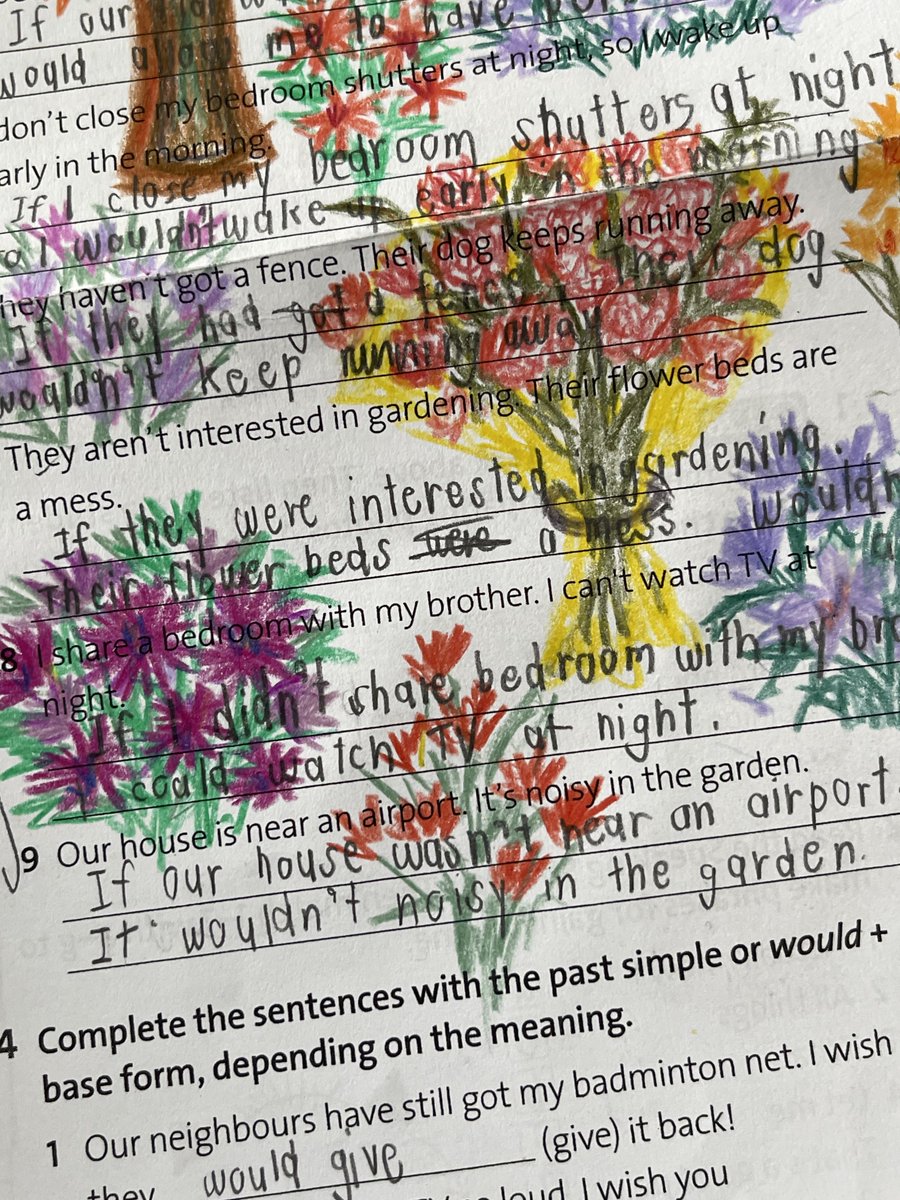 If our
would allow me to have
don't close my bedroom shutters at night, so I wake up
arly in the morning.
If I close my bedroom shutters at night
I wouldn't wake up early in the morning
hey haven't got a fence. Their dog keeps running away.
If they had got a fence, their dog
wouldn't keep running away
They aren't interested in gardening. Their flower beds are
a mess.
If they were interested in gardening.
Their flower beds were a mess. wouldn
8 I share a bedroom with my brother. I can't watch TV at
night.
If I didn't share bedroom with my bro
I could watch TV at night.
9 Our house is near an airport. It's noisy in the garden.
If our house wasn't near an airport.
It wouldn't noisy in the garden.
4 Complete the sentences with the past simple or would +
base form, depending on the meaning.
1 Our neighbours have still got my badminton net. I wish
they would give (give) it back!
loud. I wish you